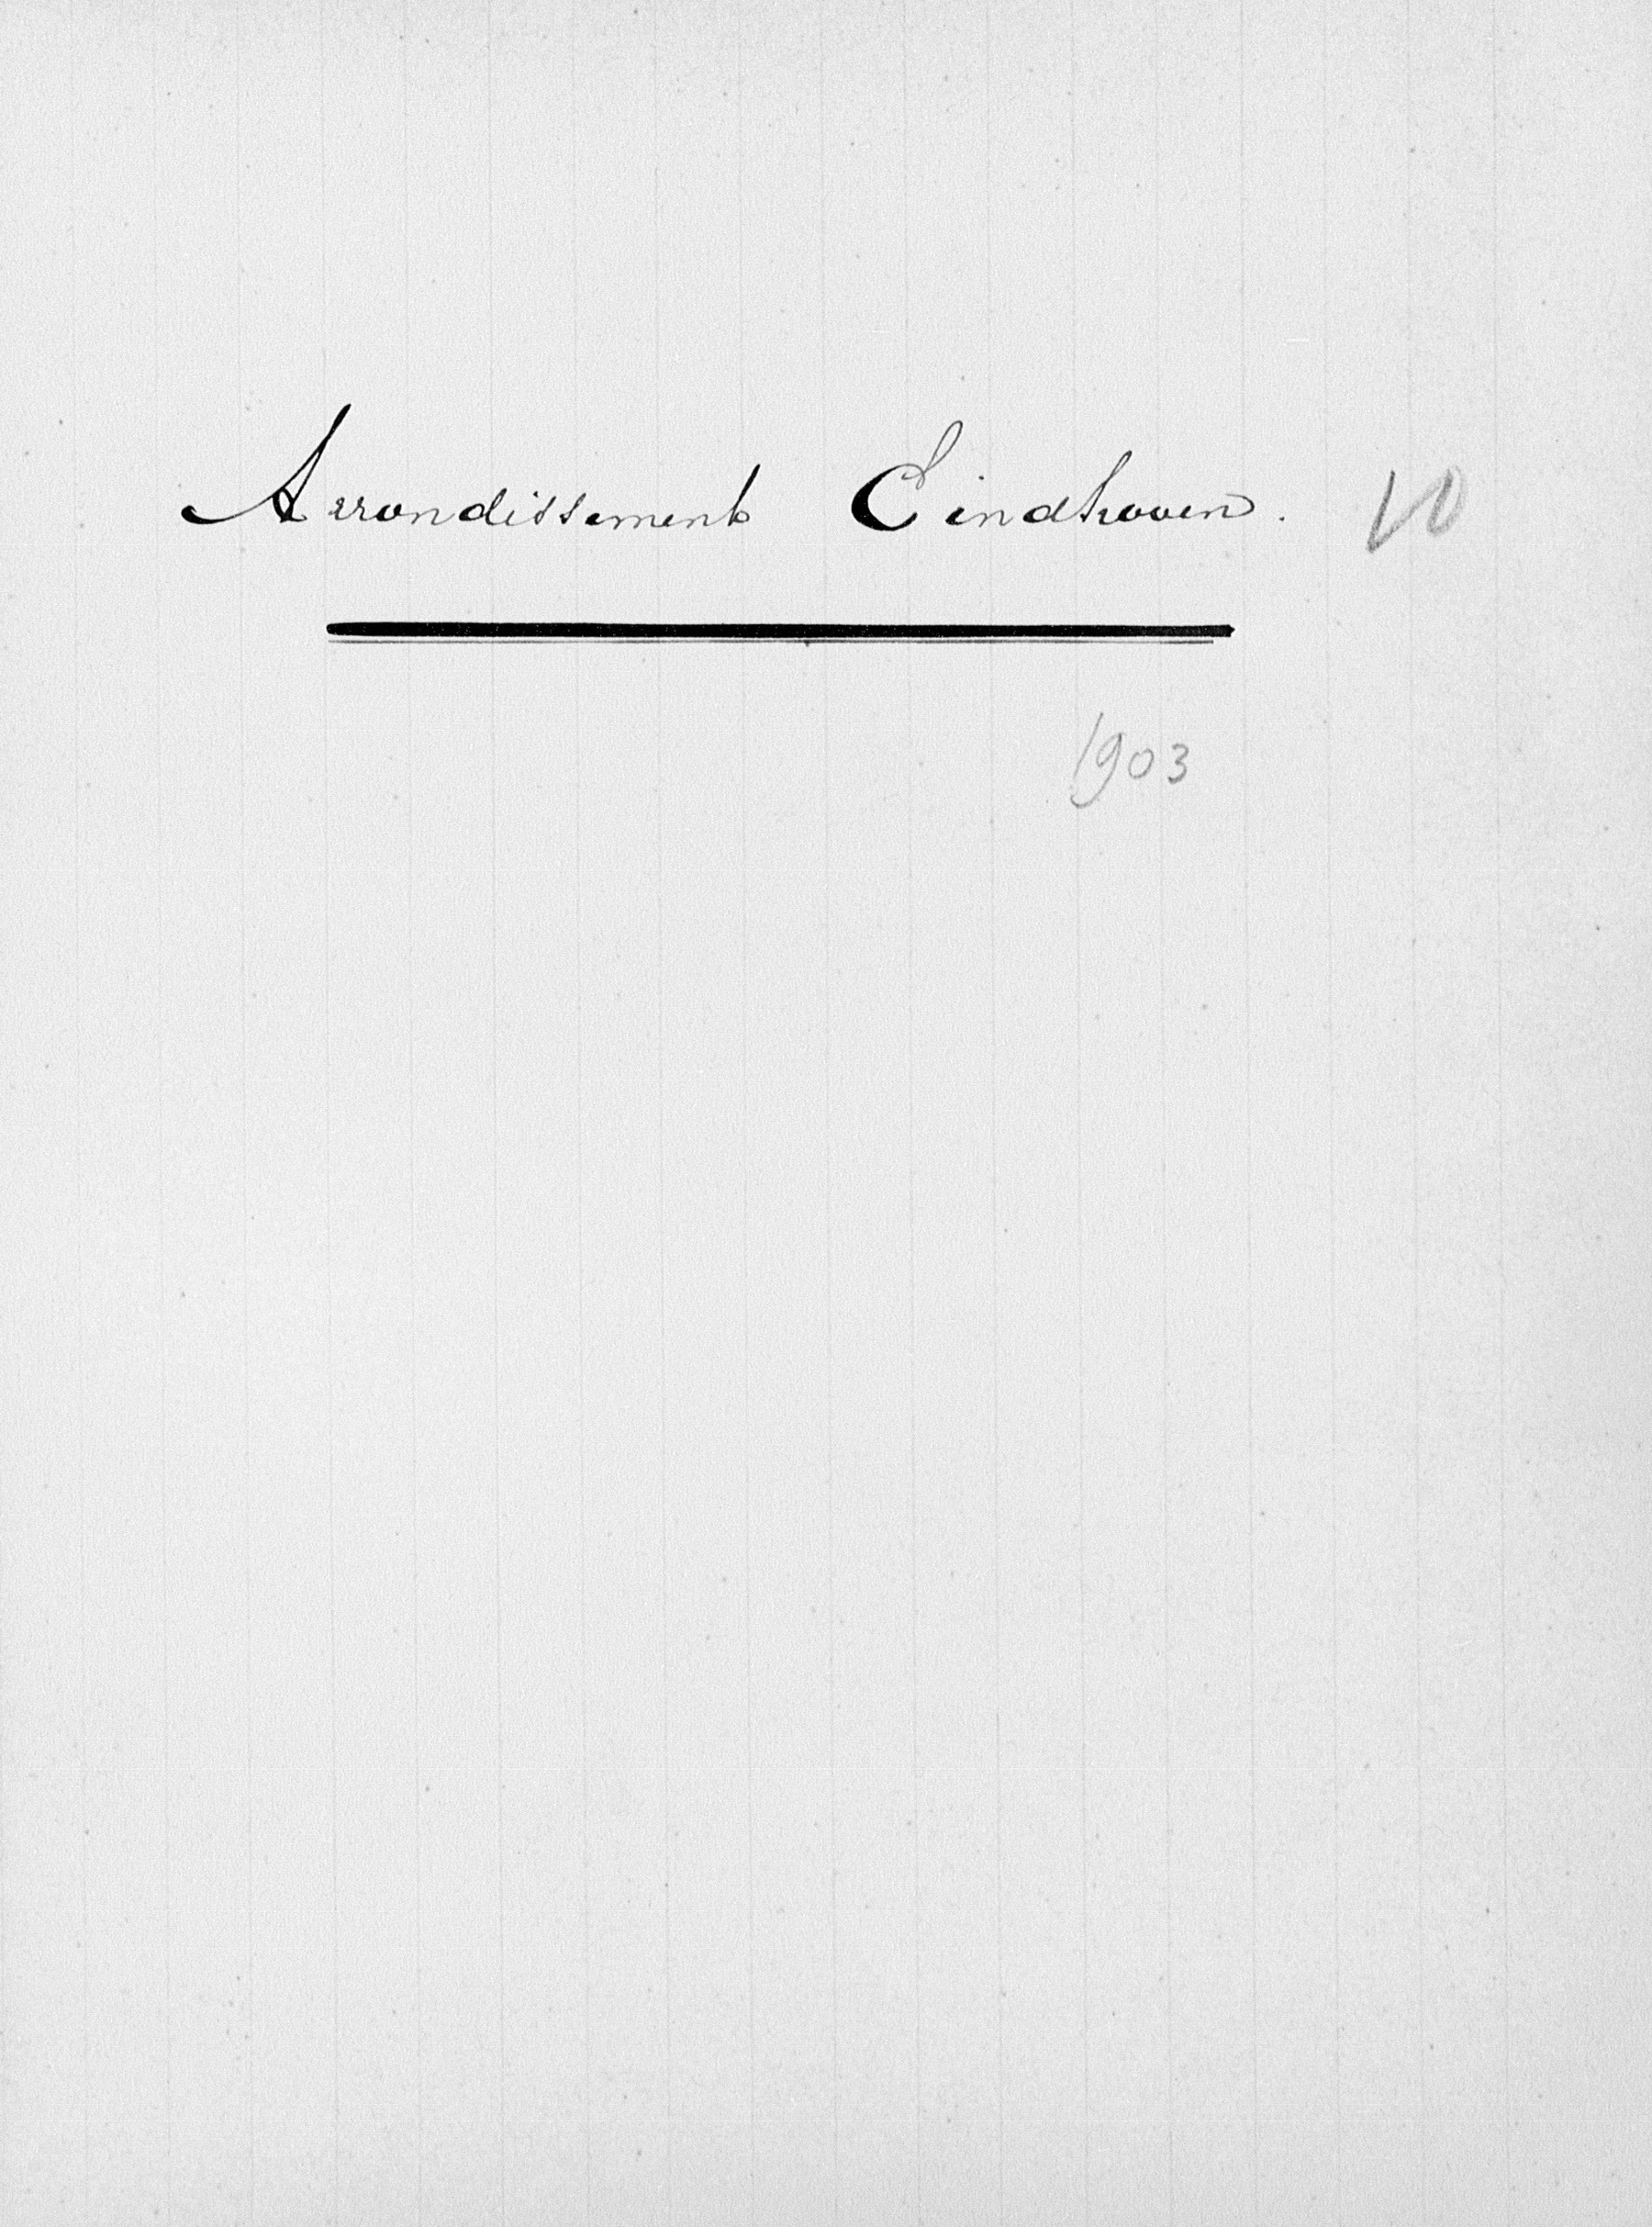 Arrondissement Eindhoven. 10
1903